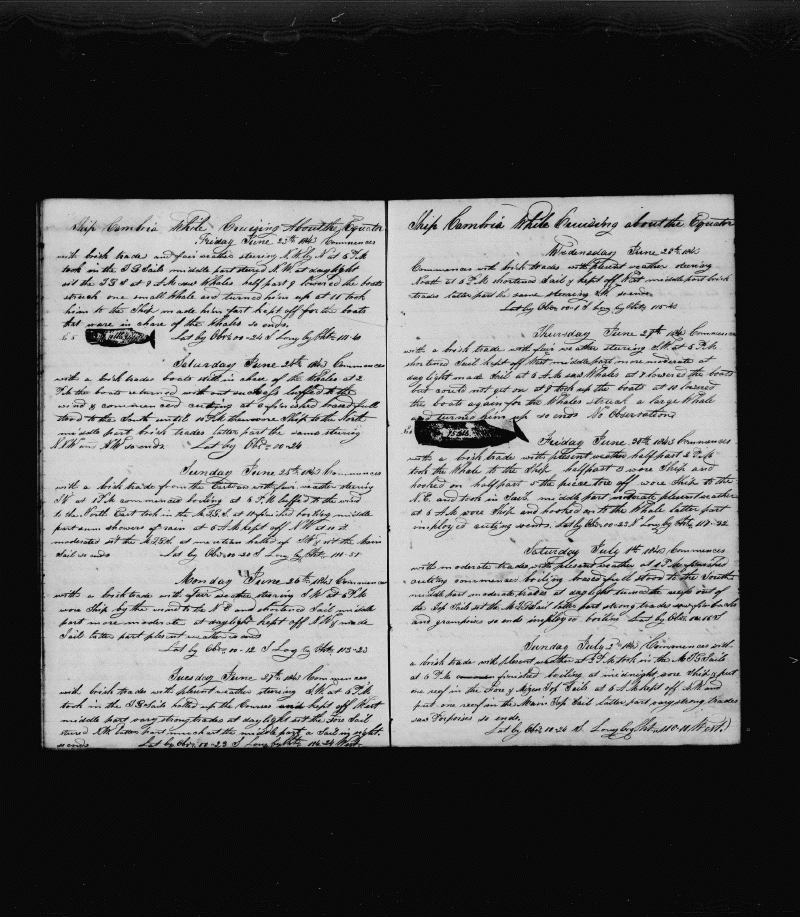 Ship Cambria While Cruising About the Equator
Friday June 23th 1843 Commences
with brisk trade and fair weather steering N.W. by N at 6 P.M
took in the T G Sails middle part steered N.W. at daylight
set the T G S at 9 A.M saw Whales half part 9 lowered the boats
struck one small Whale and turned him up at 11 took
him to the Ship made him fast kept off for the boats
that ware in chase of the Whales so ends
Lat by Obs 00-24 S Long by Chr 111-40
Saturday June 24th 1843 Commences
with a brisk trades boats still in chase of the Whales at 2
P.M the boats returned with out success luffed to the
wind & commenced cutting at 6 finished boased full
stood to the South until 10 P.M then wore Ship to the North
middle part brisk trades latter part the same steering
N.N.W and N.W so ends Lat by Obs 00-24
Sunday June 25th 1843 Commences
with a brisk trade from the Eastward with fair weather steering
SW at 1 P.M commenced boiling at 6 P.M luffed to the wind
to the North East took in the M.T.G.S. at 11 finished boiling middle
part some showers of rain at 6 A.M kept off N W at 10 it
moderated set the M.T.G.S. at meridian hauled up S W & set the Main
Sail so ends Lat by Obs 00-20 S Long by Chr 111-51
Monday June 26th 1843 Commences
with a brisk trade with fair weather steering S W at 6 P.M
wore Ship by the wind to the N E and shortened Sail middle
part more moderate at daylight kept off N W & made
Sail latter part plesent weather so ends
Lat by Obs 00-12 S Long by Chr 113-23
Tuesday June 27th 1843 Commences
with brisk trades with plesent weather steering S.W. at 6 P.M
took in the T.G Sails hauled up the Courses and kept off West
middle part vary strong trades at daylight set the Fore Sail
steered N.W latter part much as the middle part a Sail in sight.
so ends Lat by Obs 00-23 S Long by Chr 114-24 West
Ship Cambria While Cruising about the Equator
Wednesday June 28th 1843
Commences with brisk trades with plesent weather steering
North at 6 P.M shortened Sail & kept off West middle part brisk
trades latter part the same steering so ends
Lat by Obs 00-1 S Long by Chr 115-43
Thursday June 29th 1843 Commences
with a brisk trade with fair weather steering S.W. at 6 P.M
shortened Sail kept off West middle part more moderate at
day light made Sail at 5 A.M saw Whales at 7 lowered the boats
but could not get on at 9 took up the boats at 10 lowered
the boats again for the Whales struck a large Whale
and turned him up so ends No Observation
75 bbls
Friday June 30th 1843 Commences
with a brisk trade with plesent weather half part 2 P.M
took the Whale to the Ship half part 3 wore Ship and
hooked on half part 5 the piece tore off wore Ship to the
N.E. and took in Sail middle part moderate plesent weather
at 6 A.M wore Ship and hooked on to the Whale latter part
imployed cutting so ends. Lat by Obs 00-23 N Long by Chr 117-22
Saturday July 1th 1843 Commences
with moderate trades with plesent weather at 4 P.M finished
cutting commenced boiling boased full stood to the South
middle part moderate trades at daylight turned the reefs out of
the Top Sails set the M.T.G Sail latter part strong trades
and grampuses so ends imployed boiling Lat by Obs
Sunday July 2nd 1843 Commences with
a brisk trade with plesent weather at 5 P.M took in the M.T.G Sails
at 6 P.M finished boiling at midnight wore Ship & put
one reef in the Fore & Mizen Top Sails at 5 A.M kept off S.W and
put one reef in the Main Top Sail latter part vary strong trades
saw Porpoises so ends
Lat by Obs 00-24 S. Long by Chr 118-11 West.)